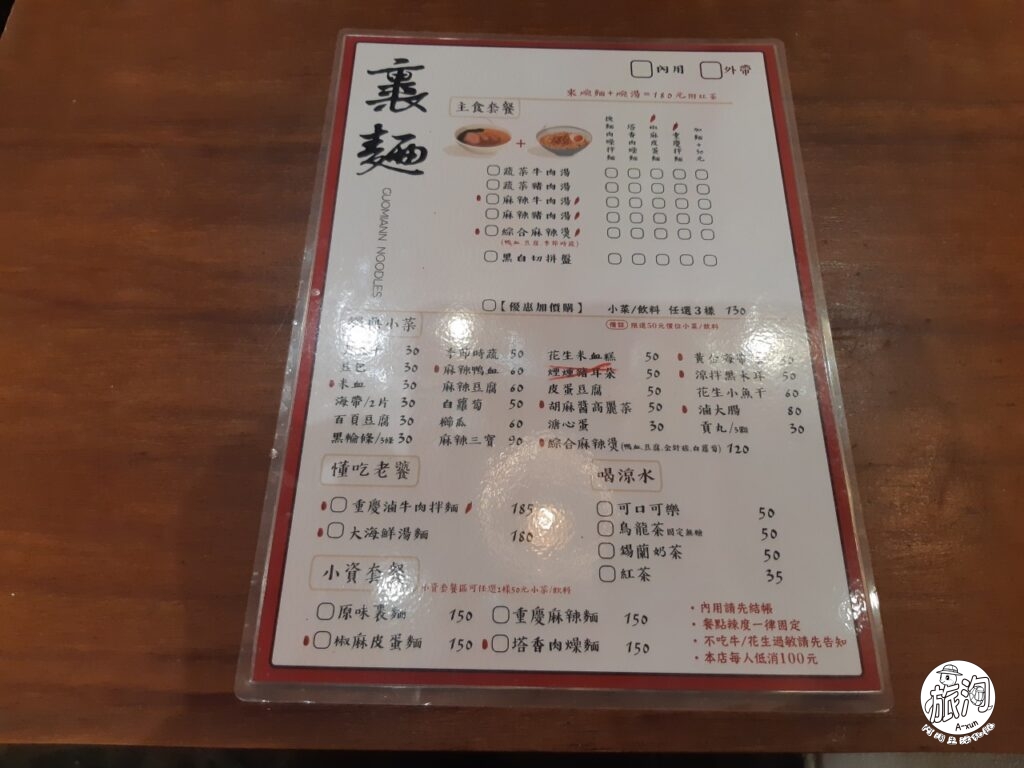 裹麵
GUOMIANN NOODLES
內用 外帶
來碗麵+碗湯=180元附紅茶
主食套餐
+
塔香肉燥麵
椒麻皮蛋麵
重慶拌麵
加麵+30元
蔬菜牛肉湯
蔬菜豬肉湯
麻辣牛肉湯
麻辣豬肉湯
綜合麻辣燙
(鴨血.豆腐.季節時蔬)
黑白切拼盤
【優惠加價購】 小菜/飲料 任選3樣 130
備註 限選50元價位小菜/飲料
小菜
30
豆包 30
米血 30
海帶/2片 30
百頁豆腐 30
黑輪條/3條 30
季節時蔬 50
麻辣鴨血 60
麻辣豆腐 60
白蘿蔔 50
櫛瓜 60
麻辣三寶 90
花生米血糕 50
煙燻豬耳朵 50
皮蛋豆腐 50
胡麻醬高麗菜 50
溏心蛋 30
綜合麻辣燙(鴨血.豆腐.金針菇.白蘿蔔) 120
涼拌黑木耳 50
花生小魚干 60
滷大腸 80
貢丸/3顆 30
懂吃老饕
重慶滷牛肉拌麵 185
大海鮮湯麵 180
喝涼水
可口可樂 50
烏龍茶固定無糖 50
錫蘭奶茶 50
紅茶 35
小資套餐
小資套餐區可任選1樣50元小菜/飲料
原味裹麵 150
重慶麻辣麵 150
椒麻皮蛋麵 150
塔香肉燥麵 150
•內用請先結帳
•餐點辣度一律固定
•不吃牛/花生過敏請先告知
•本店每人低消100元
旅洵
A-xun